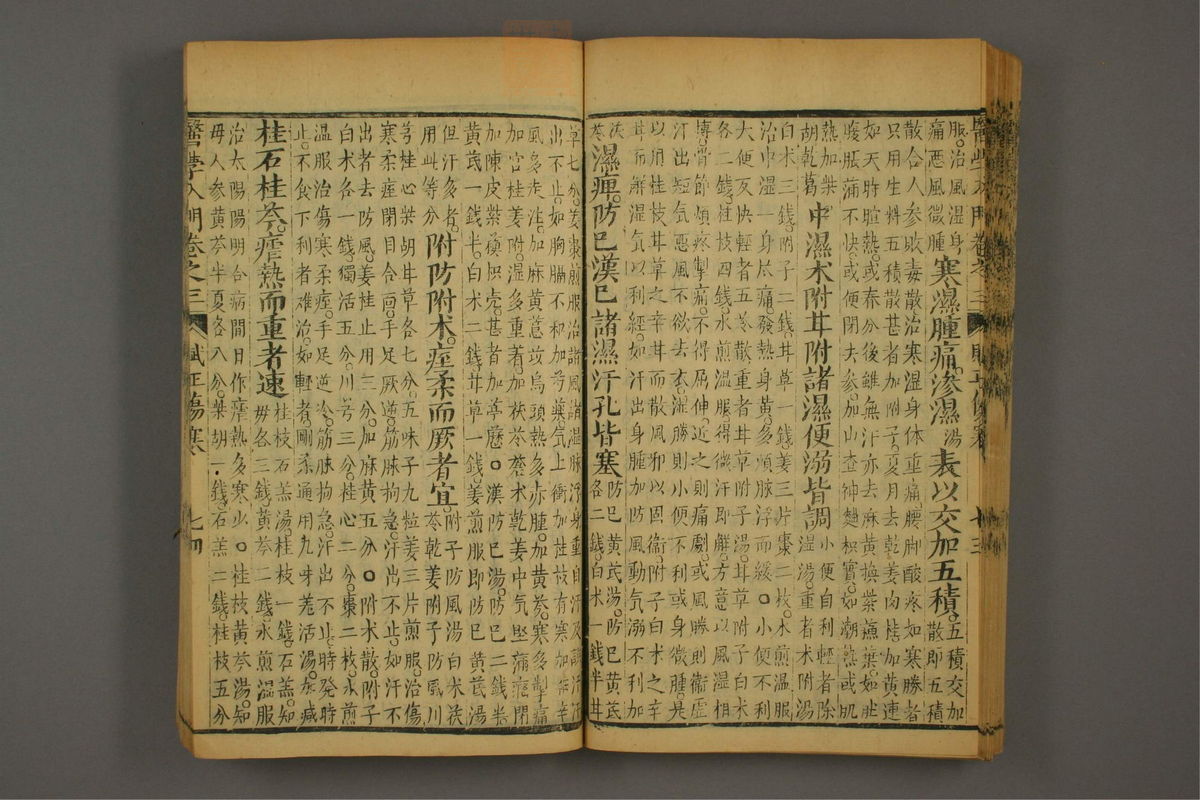 醫學入門卷之三 賦正傷寒 七十三
服。治風濕身
痛惡風微腫
寒濕腫痛滲濕湯表以交加五積。
五積交加
散即五積
散合人參敗毒散治寒濕身体重痛腰脚酸疼如寒勝者
只用生料五積散甚者加附子。夏月去乾姜肉桂加黃連
如天時暄熱。或春分後雖無汗亦去麻黃換紫蘇葉。如肚
腹脹滿不快。或便閉夫參。加山查神麯枳實。如潮熱或肌
熱加柴
胡乾葛
中濕术附甘附諸濕便溺皆調
小便自利輕者除
濕湯重者术附湯
白术三錢。附子二錢。甘草一錢。姜三片棗二枚。水煎溫服
治中濕一身於痛。發熱身黃。多煩脉浮而緩。○小便不利
大便反快輕者五苓散重者甘草附子湯。甘草附子白术
各二錢。桂枝四錢。水煎溫服得微汗即解。方意以風濕相
搏。骨節煩疼掣痛。不得屈伸。近之則痛劇。或風勝則衛虛
汗出短気惡風不欲去衣。濕勝則小便不利或身微腫。是
以須桂枝甘草之辛甘而散風邪以固衛。附子白术之辛
以而解濕気以利經。如汗出身腫加防風動気溺不利加
茯
苓
濕痺防己漢己諸濕汗孔皆塞
防己黃芪湯。防己黃芪
各二錢。白术一錢半甘
草七分。姜棗煎服治諸風諸濕脉浮身重自汗及諸汗汗
出不止。如胸膈不和加芍藥。気上衝加桂枝有寒加細辛
風多走注。加麻黃薏苡烏頭熱多赤腫。加黃芩。寒多掣痛
加官桂姜附。濕多重着。加茯苓蒼术乾姜。中気堅痛癃閉
加陳皮紫蘇枳壳。甚者加葶藶。○漢防己湯。防己二錢半
黃芪一錢半。白术二錢。甘草一錢。姜煎服即防己黃芪湯
但汗多者。
用此等分
附防附术。痙柔而厥者宜。
附子防風湯白术茯
苓乾姜附子防風川
芎桂心柴胡甘草各七分。五味子九粒姜三片煎服。治傷
寒柔痙閉目合面手足厥逆。筋脉拘急。汗出不止。如汗不
出者去防風。姜桂止用三分。加麻黃五分。○附术散。附子
白术各一錢。獨活五分。川芎三分。桂心二分。棗二枚。水煎
溫服治傷寒柔痙。手足逆冷。筋脉拘急。汗出不止時発時
止。不食下利者難治。如輕者。剛柔通用九味羌活湯。加減
桂石桂芩。瘧熱而重者速
桂枝石羔湯。桂枝一錢。石羔知
母各三錢。黃芩二錢。水煎溫服
治太陽陽明合病間日作瘧熱多寒少。○桂枝黃芩湯。知
母人参黃芩半夏各八分。柴胡一錢。石羔二錢。桂枝五分
醫學入門卷之三 賦正傷寒 七四